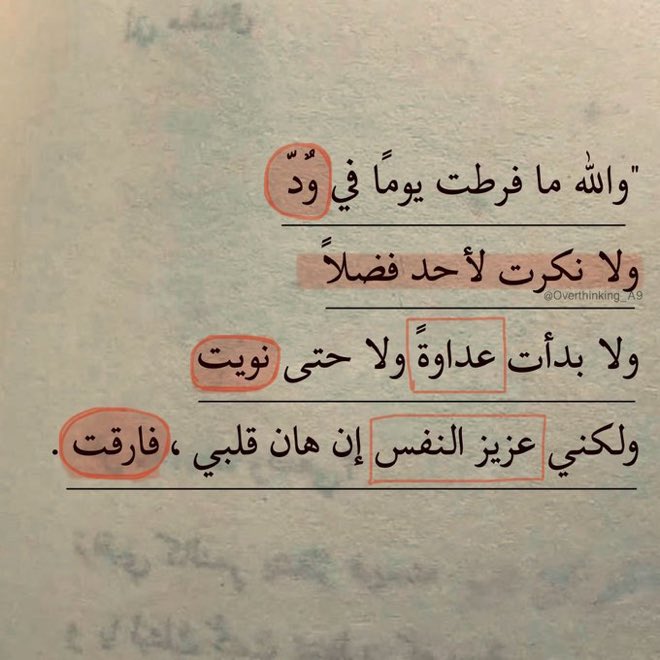 "والله ما فرطت يومًا في وٌدّ
ولا نكرت لأحد فضلاً
@Overthinking_A9
ولا بدأت عداوةً ولا حتى نويت
ولكني عزيز النفس إن هان قلبي ، فارقت .